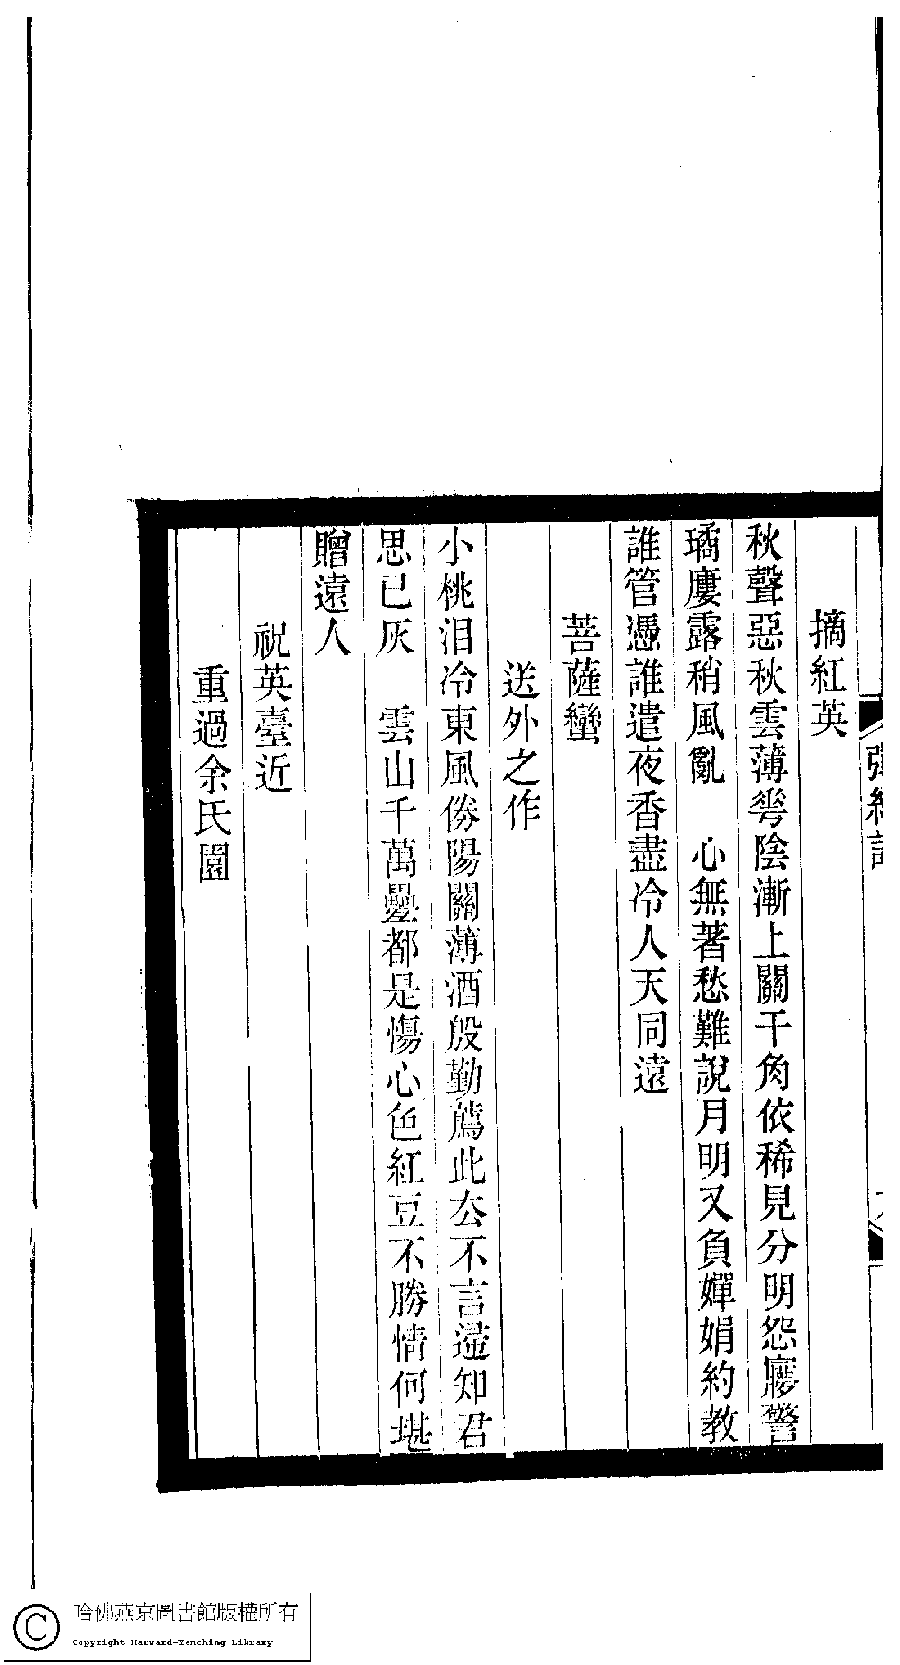 摘紅英
秋聲惡秋雲薄花陰漸上闌干角依稀見分明怨廖警
璚廔露稍風亂　心無著愁難說月明又負嬋娟約教
誰管憑誰遣夜香盡冷人天同遠
菩薩蠻
送外之作
小桃泪冷東風傍陽關薄酒殷勤薦此去不言歸知君
思已灰　雲山千萬疊都是傷心色紅豆不勝情何堪
贈遠人
祝英臺近
重過余氏園
哈佛燕京圖書館版權所有
Copyright Harvard-Yenching Library